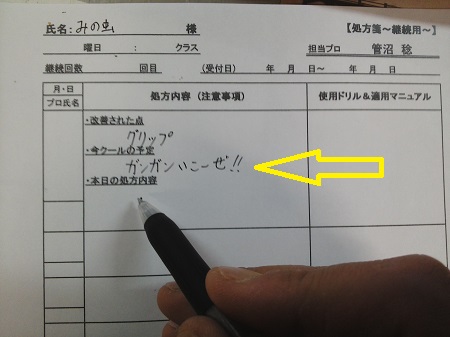 氏名:みの虫 様 【処方箋～継続用～】
曜日 : クラス 担当プロ 菅沼 稔
継続回数 回目 (受付日) 年 月 日～ 年 月 日
月・日
プロ氏名 処方内容(注意事項) 使用ドリル&適用マニュアル
・改善された点
グリップ
・今クールの予定
ガンガンいこーぜ!!
・本日の処方内容